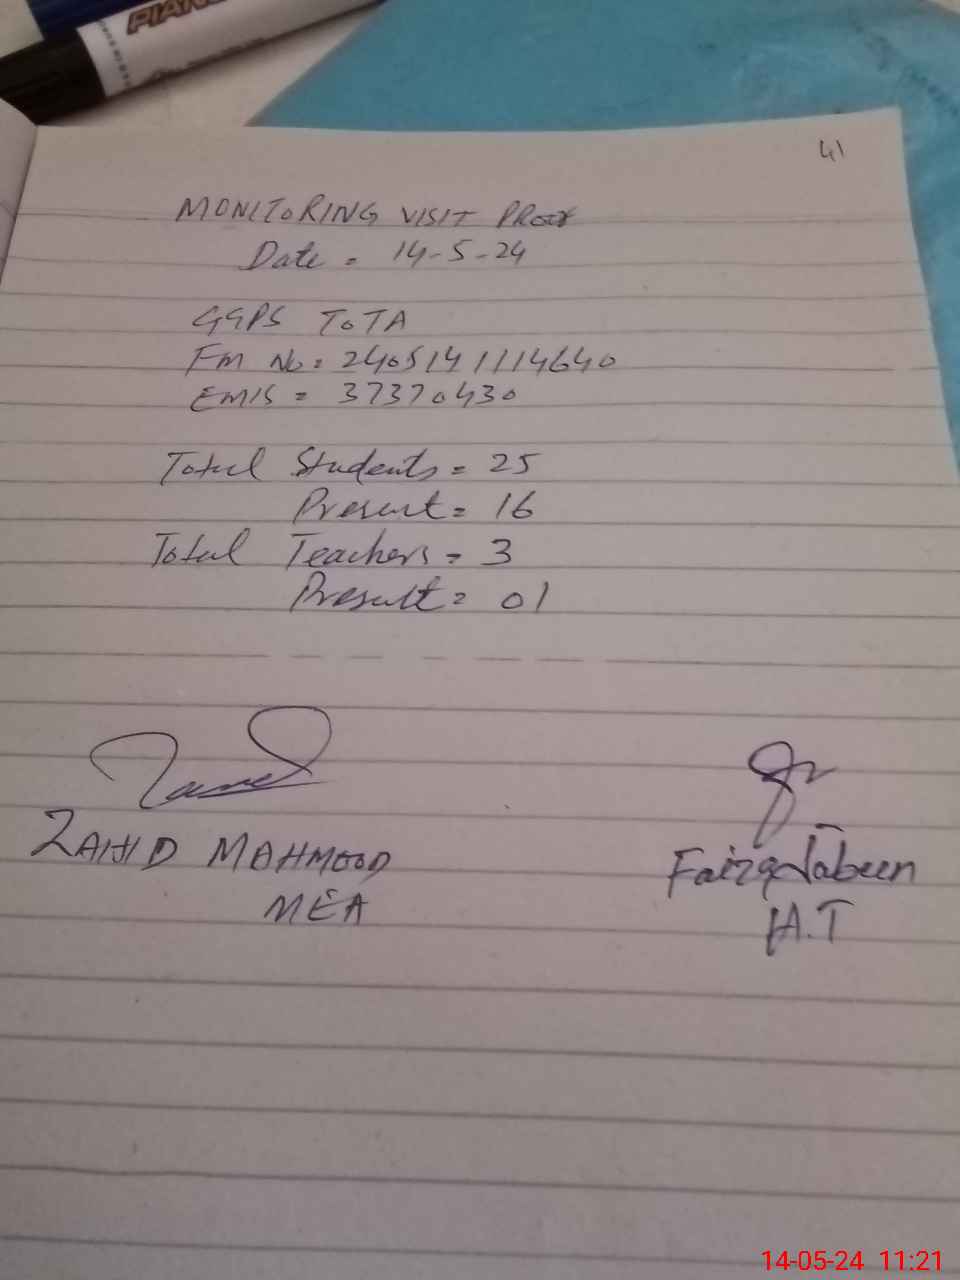 PIANO
41
MONITORING VISIT PROOF
Date = 14-5-24
GGPS TOTA
Fm No = 2405141114640
EMIS = 37370430
Total Students = 25
Present = 16
Total Teachers = 3
Present = 01
ZAHID MAHMOOD
MEA
Faiza Jabeen
H.T
14-05-24 11:21